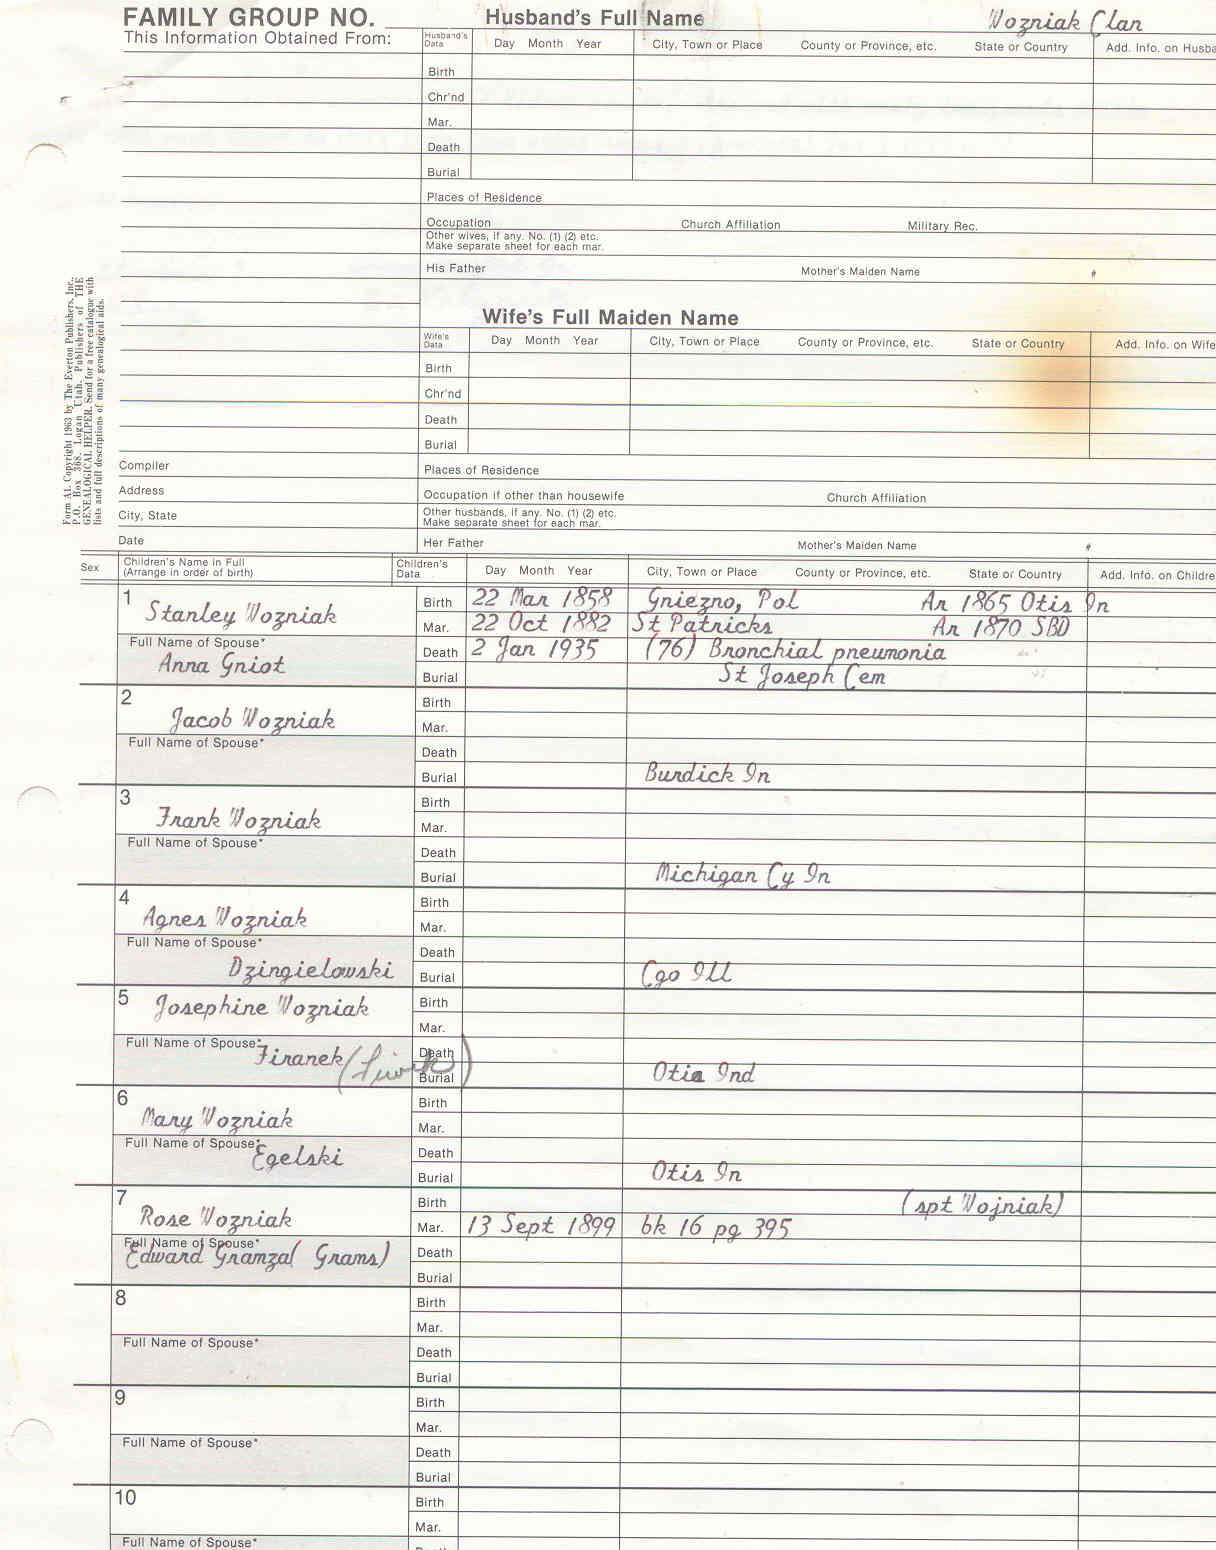 FAMILY GROUP NO.
Husband's Full Name
Wozniak Clan
This Information Obtained From:
Husband's Data Day Month Year City, Town or Place County or Province, etc. State or Country Add. Info. on Husba
Birth
Chr'nd
Mar.
Death
Burial
Places of Residence
Occupation Church Affiliation Military Rec.
Other wives, if any. No. (1) (2) etc.
Make separate sheet for each mar.
His Father Mother's Maiden Name
Wife's Full Maiden Name
Wife's Data Day Month Year City, Town or Place County or Province, etc. State or Country Add. Info. on Wife
Birth
Chr'nd
Death
Burial
Compiler Places of Residence
Address Occupation if other than housewife Church Affiliation
City, State Other husbands, if any. No. (1) (2) etc.
Make separate sheet for each mar.
Date Her Father Mother's Maiden Name
Form A1. Copyright 1963 by The Everton Publishers, Inc.,
P.O. Box 368, Logan Utah. Publishers of THE
GENEALOGICAL HELPER. Send for a free catalogue with
lists and full descriptions of many genealogical aids.
Sex Children's Name in Full
(Arrange in order of birth) Children's Data Day Month Year City, Town or Place County or Province, etc. State or Country Add. Info. on Childre
1 Stanley Wozniak Birth 22 Mar 1858 Gniezno, Pol Ar 1865 Otis In
Mar. 22 Oct 1882 St Patricks Ar 1870 SBD
Full Name of Spouse* Anna Gniot Death 2 Jan 1935 (76) Bronchial pneumonia
Burial St Joseph Cem
2 Jacob Wozniak Birth
Mar.
Full Name of Spouse* Death
Burial Burdick In
3 Frank Wozniak Birth
Mar.
Full Name of Spouse* Death
Burial Michigan Cy In
4 Agnes Wozniak Birth
Mar.
Full Name of Spouse* Death
Dzingielowski Burial Cgo Ill
5 Josephine Wozniak Birth
Mar.
Full Name of Spouse* Firanek Death
Burial Otis Ind
6 Mary Wozniak Birth
Mar.
Full Name of Spouse* Egelski Death
Burial Otis In
7 Rose Wozniak Birth (spt Wojniak)
Mar. 13 Sept 1899 bk 16 pg 395
Full Name of Spouse* Edward Gramza (Grams) Death
Burial
8 Birth
Mar.
Full Name of Spouse* Death
Burial
9 Birth
Mar.
Full Name of Spouse* Death
Burial
10 Birth
Mar.
Full Name of Spouse*